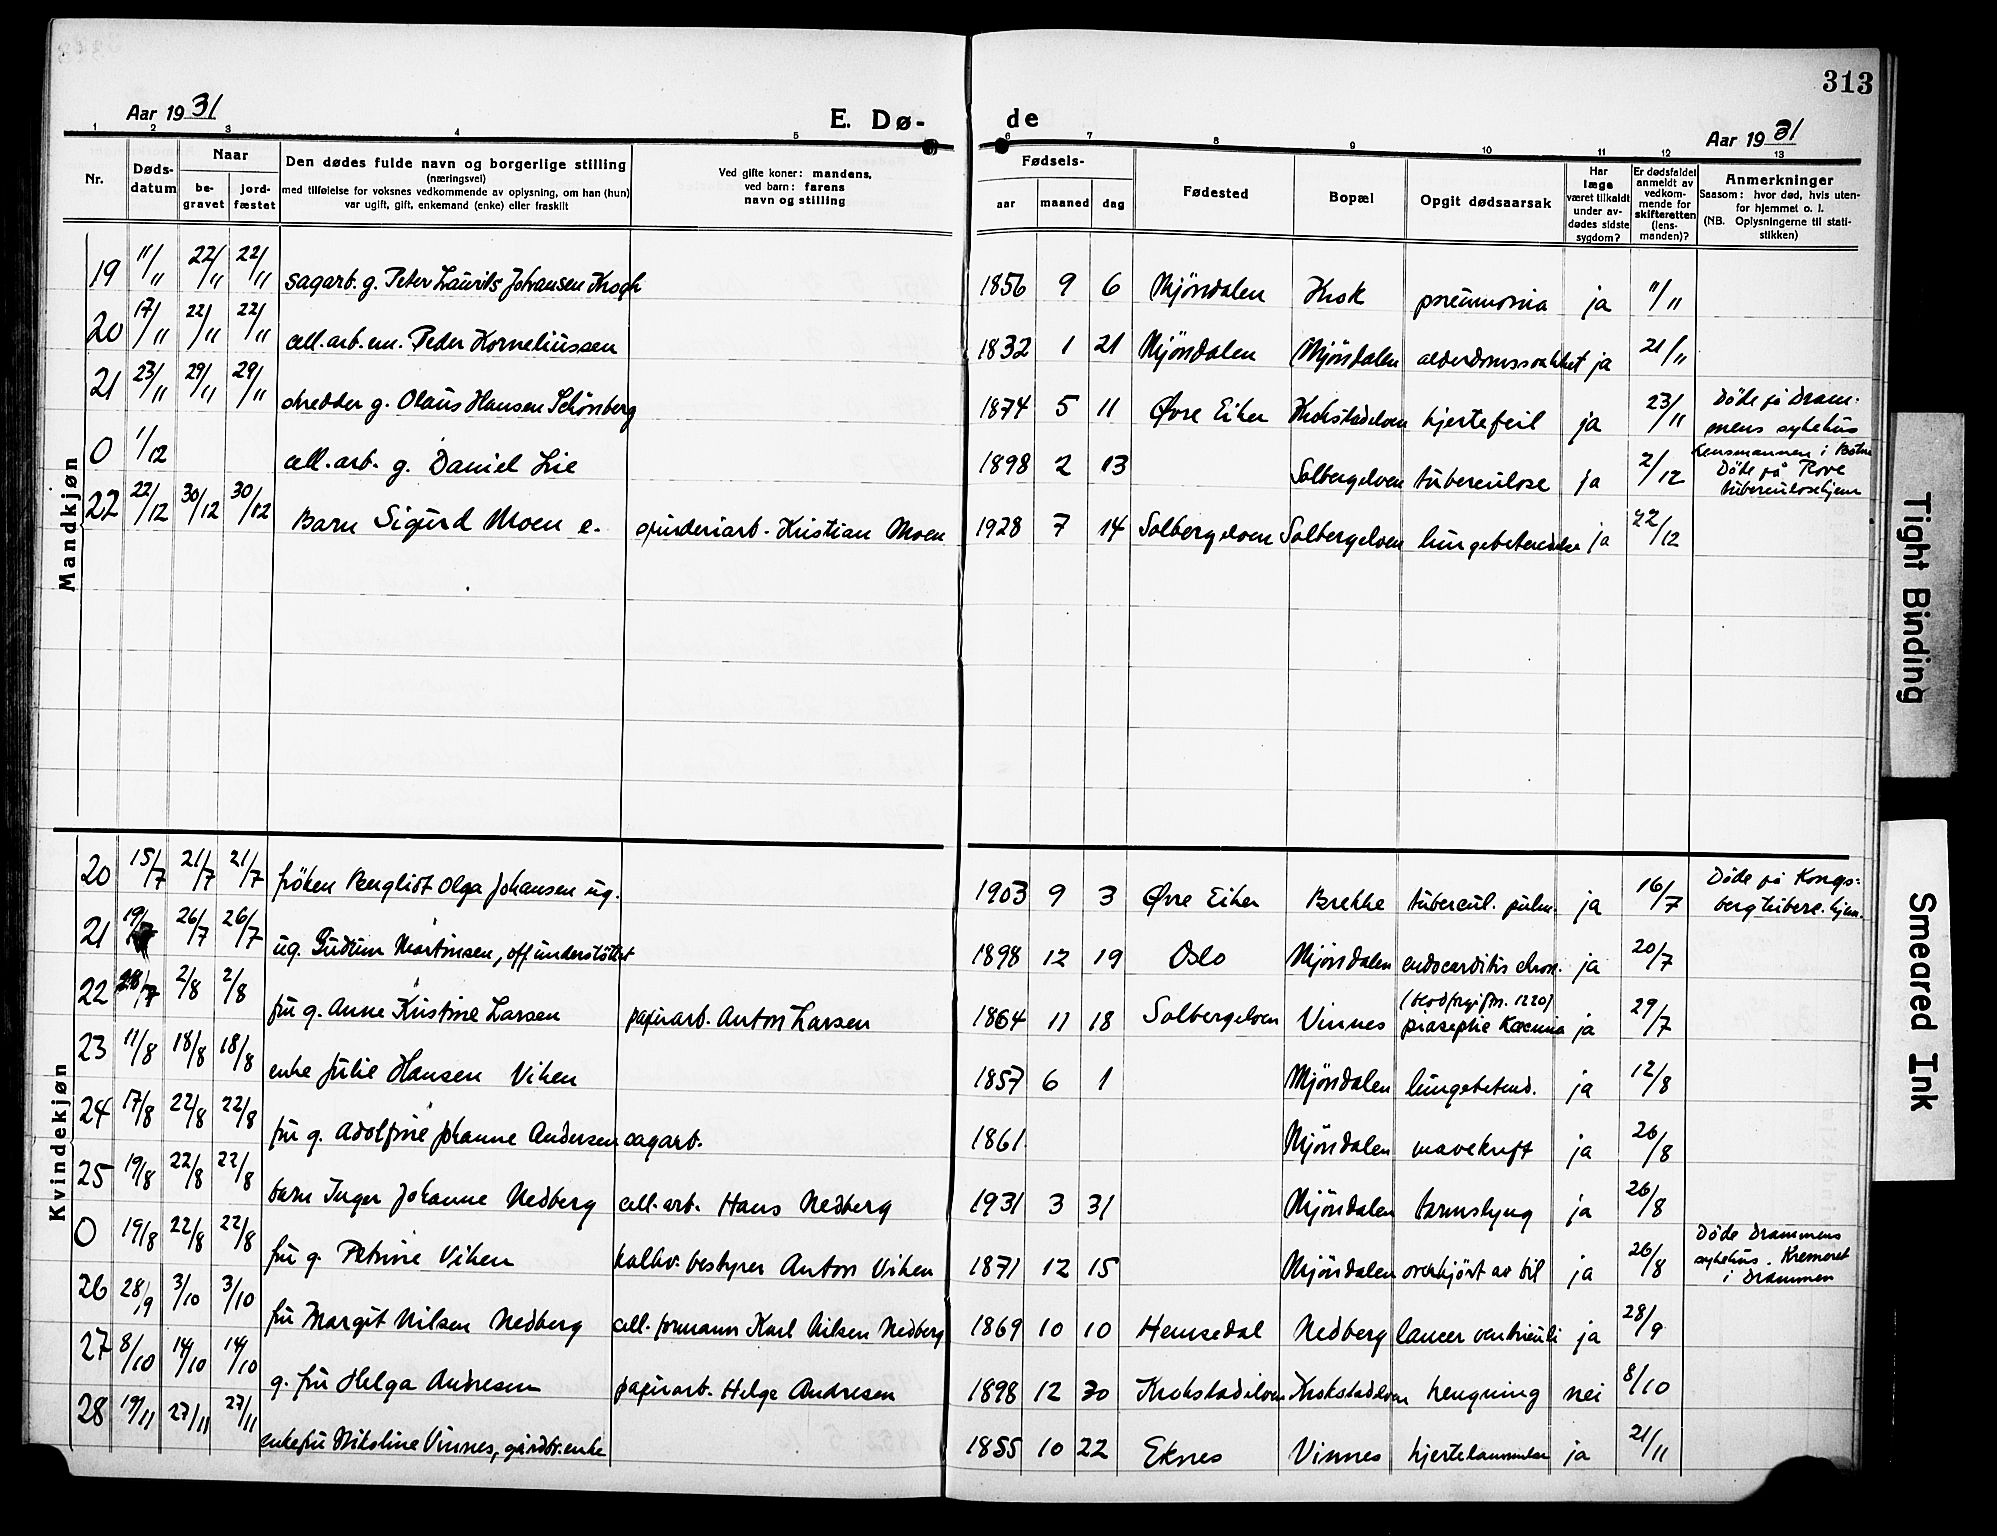 313
Aar 1931
E. Dø-
de
Aar 1931
1 2 3 4 5 6 7 8 9 10 11 12 13
Nr.
Døds-
datum
Naar
be-
gravet
jord-
fæstet
Den dødes fulde navn og borgerlige stilling
(næringsvei)
med tilføielse for voksnes vedkommende av oplysning, om han (hun)
var ugift, gift, enkemand (enke) eller fraskilt
Ved gifte koner: mandens,
ved barn: farens
navn og stilling
Fødsels-
aar maaned dag
Fødested
Bopæl
Opgit dødsaarsak
Har
læge
været tilkaldt
under av-
dødes sidste
sygdom?
Er dødsfaldet
anmeldt av
vedkom-
mende for
skifteretten
(lens-
manden)?
Anmerkninger
Saasom: hvor død, hvis uten-
for hjemmet o. l.
(NB. Oplysningerne til stati-
stikken)
Mandkjøn
19 11/11 22/11 22/11 sagarb. g. Peter Laurits Johansen Krogh 1856 9 6 Mjöndalen Krok pneumonia ja 11/11
20 17/11 22/11 22/11 cell. arb. em. Peder Korneliussen 1832 1 21 Mjöndalen Mjöndalen alderdomssvakhet ja 21/11
21 23/11 29/11 29/11 skredder g. Olaus Hansen Schönberg 1874 5 11 Øvre Eiker Krokstadelven hjertefeil ja 23/11 Döde på Dram-
mens sykehus
0 1/12 cell. arb. g. Daniel Lie 1898 2 13 Solbergelven tuberculose ja 2/12 Lensmannen i Botne
Döde på Rove
tuberculosehjem
22 22/12 30/12 30/12 Barn Sigurd Moen e. spinderiarb. Kristian Moen 1928 7 14 Solbergelven Solbergelven lungebetendelse ja 22/12
Kvindekjøn
20 15/7 21/7 21/7 fröken Bergliot Olga Johansen ug. 1903 9 3 Øvre Eiker Brekke tubercul. pulm. ja 16/7 Döde på Kongs-
berg tuberc. hjem.
21 19/7 26/7 26/7 ug. Gudrun Martinsen, off understöttet 1898 12 19 Oslo Mjöndalen endocarditis chron. ja 20/7
22 28/7 2/8 2/8 fru g. Anne Kristine Larsen papirarb. Anton Larsen 1864 11 18 Solbergelven Vinnes ja 29/7
23 11/8 18/8 18/8 enke Julie Hansen Viken 1857 6 1 Mjöndalen lungebetend. ja 12/8
24 17/8 22/8 22/8 fru g. Adolfine Johanne Andersen sagarb. 1861 Mjöndalen mavekreft ja 26/8
25 19/8 22/8 22/8 barn Inger Johanne Nedberg cell. arb. Hans Nedberg 1931 3 31 Mjöndalen ja 26/8
0 19/8 22/8 22/8 fru g. Petrine Viken bestyrer Anton Viken 1871 12 15 Mjöndalen overkjört av bil ja 26/8 Döde Drammens
sykehus. Kremeret
i Drammen
26 28/9 3/10 3/10 fru Margit Nilsen Nedberg cell. formann Karl Nilsen Nedberg 1869 10 10 Hemsedal Nedberg cancer ventriculi ja 28/9
27 8/10 14/10 14/10 g. fru Helga Andresen papirarb. Helge Andresen 1898 12 20 Krokstadelven Krokstadelven hengning nei 8/10
28 19/11 27/11 27/11 enkefru Nikoline Vinnes, gårdbr. enke 1855 10 22 Eknes Vinnes hjertelammelse ja 21/11
Tight Binding
Smeared Ink